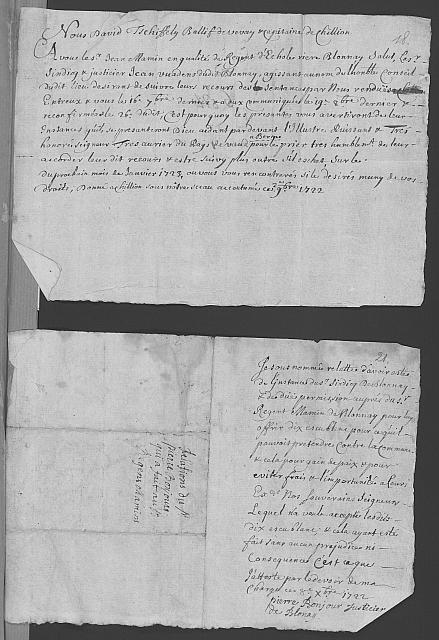 18.
Nous David Tschiffely Ballif de vevay & capitaine de chillion
A vous le Sr. Jean Mamin en qualité de Regent d'Echole riere Blonnay Salut, Les Srs
Sindicq & justicier Jean dudit Blonnay, agissant au nom du honble Conseil
dudit lieu desirent de suivre leurs recours des sentances par Nous rendues
Entreux & vous le 16e 7bre dernier & aux communiques le 19e 9bre dernier &
reconfirmée le 26e dudit C'est pourquoy les presentes vous avertiront de leur
Instance quils se presenteront Dieu aidant par devant l'Illustre Puissant & Tres
honoré Seigneur Tresaurier du Pays de vaud a Berne pour le prier tres humblemt. de leur
accorder leur dit recours & estre suivy plus outre s'il eschet. Sur le
du prochain mois de Janvier 1723, ou vous vous rencontrerés si le desirés muny de vos
droits, Donné a chillion sous nôtre sceau accoutumé ce 9e Xbre 1722
21.
Je sous nommé relatte d'avoir esté
de l'instance du Sr. Sindicq de Blonnay
& des dües permission aupres du Sr.
Regent Mamin de Blonnay pour luy
offrir dix escu blanc pour ce qu'il
pouvoit pretendre contre la commune
& cela pour gain de paix & pour
eviter frais & l'importunité a leurs
Exces Nos Souverains Seigneurs
Lequel n'a voulu accepte lesdits
dix escu blanc, & cela ayant esté
fait sans aucun prejudice ni
Consequences C'est ce que
J'atteste par le devoir de ma
Charge ce Xbre 1722
pierre Bonjour Justicier
de Blonay
relations du Sr.
pierre Bonjour
Regent mamin